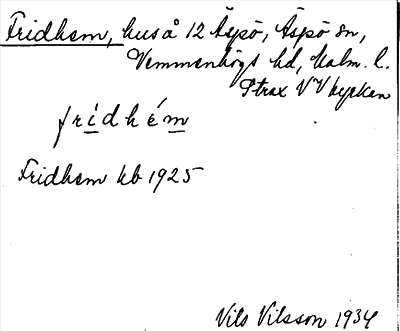 Fridhem, hus å 12 Äspö, Äspö sn,
Vemmenhögs hd, Malm. l.
Strax VV kyrkan
frídhém
Fridhem kb 1925
Nils Nilsson 1934